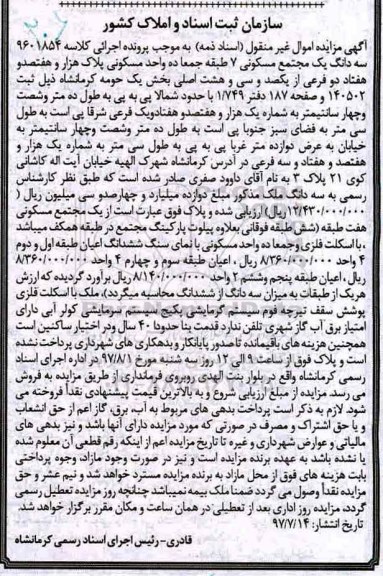 سازمان ثبت اسناد و املاک کشور
آگهی مزایده اموال غیر منقول (اسناد ذمه) به موجب پرونده اجرائی کلاسه ۹۶۰۱۸۵۴
سه دانگ یک مجتمع مسکونی ۷ طبقه جمعا ده واحد مسکونی پلاک هزار و هفتصدو
هفتاد دو فرعی از یکصد و سی و هشت اصلی بخش یک حومه کرمانشاه ذیل ثبت
۱۴۰۵۰۲ و صفحه ۱۸۷ دفتر ۱/۷۴۹ با حدود شمالا پی به پی به طول ده متر وشصت
وچهار سانتیمتر به شماره یک هزار و هفتصدو هفتادویک فرعی شرقا پی است به طول
سی متر به فضای سبز جنوبا پی است به طول ده متر وشصت وچهار سانتیمتر به
خیابان به عرض دوازده متر غربا پی به پی به طول سی متر به شماره یک هزار و
هفتصد و هفتاد و سه فرعی در آدرس کرمانشاه شهرک الهیه خیابان آیت اله کاشانی
کوی ۲۱ پلاک ۳ به نام آقای داوود صفری صادر شده است که طبق نظر کارشناس
رسمی به سه دانگ ملک مذکور مبلغ دوازده میلیارد و چهارصدو سی میلیون ریال (
۱۲/۴۳۰/۰۰۰/۰۰۰ ریال) ارزیابی شده و پلاک فوق عبارت است از یک مجتمع مسکونی
هفت طبقه (شش طبقه فوقانی بعلاوه پیلوت پارکینگ مجتمع در طبقه همکف میباشد
،با اسکلت فلزی وجمعا ده واحد مسکونی با نمای سنگ ششدانگ اعیان طبقه اول و دوم
۴ واحد ۸/۳۶۰/۰۰۰/۰۰۰ ریال ، اعیان طبقه سوم و چهارم ۴ واحد ۸/۳۶۰/۰۰۰/۰۰۰
ریال ،اعیان طبقه پنجم وششم ۲ واحد ۸/۱۴۰/۰۰۰/۰۰۰ ریال برآورد گردیده که ارزش
هریک از طبقات به میزان سه دانگ از ششدانگ محاسبه میگردد)، ملک با اسکلت فلزی
پوشش سقف تیرچه فوم سیستم گرمایشی پکیج سیستم سرمایشی کولر آبی دارای
امتیاز برق آب گاز شهری تلفن ندارد قدمت بنا حدودا ۴۰ سال ودر اختیار ساکنین است
همچنین هزینه های باقیمانده تاصدور پایانکار و بدهکاری های شهرداری پرداخت نشده
است و پلاک فوق از ساعت ۹ الی ۱۲ روز سه شنبه مورخ ۹۷/۸/۱ در اداره اجرای اسناد
رسمی کرمانشاه واقع در بلوار بنت الهدی روبروی فرمانداری از طریق مزایده به فروش
می رسد. مزایده از مبلغ ارزیابی شروع و به بالاترین قیمت پیشنهادی نقدا فروخته می
شود. لازم به ذکر است پرداخت بدهی های مربوط به آب، برق، گاز اعم از حق انشعاب
و یا حق اشتراک و مصرف در صورتی که مورد مزایده دارای آنها باشد و نیز بدهی های
مالیاتی و عوارض شهرداری و غیره تا تاریخ مزایده اعم از اینکه رقم قطعی آن معلوم شده
یا نشده باشد به عهده برنده مزایده است و نیز در صورت وجود مازاد، وجوه پرداختی
بابت هزینه های فوق از محل مازاد به برنده مزایده مسترد خواهد شد و نیم عشر و حق
مزایده نقدا وصول می گردد ضمنا ملک بیمه نمیباشد چنانچه روز مزایده تعطیل رسمی
گردد، مزایده روز اداری بعد از تعطیلی در همان ساعت و مکان مقرر برگزار خواهد شد.
تاریخ انتشار: ۹۷/۷/۱۴
قادری- رئیس اجرای اسناد رسمی کرمانشاه